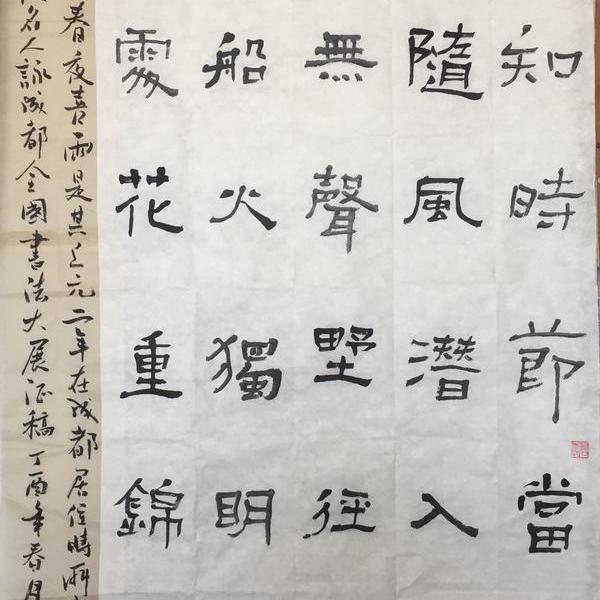 知時節當
隨風潛入
無聲野徑
船火獨明
處花重錦
春夜喜雨是其上元二年在成都居住時所
名人詠成都全國書法大展征稿丁酉年春月